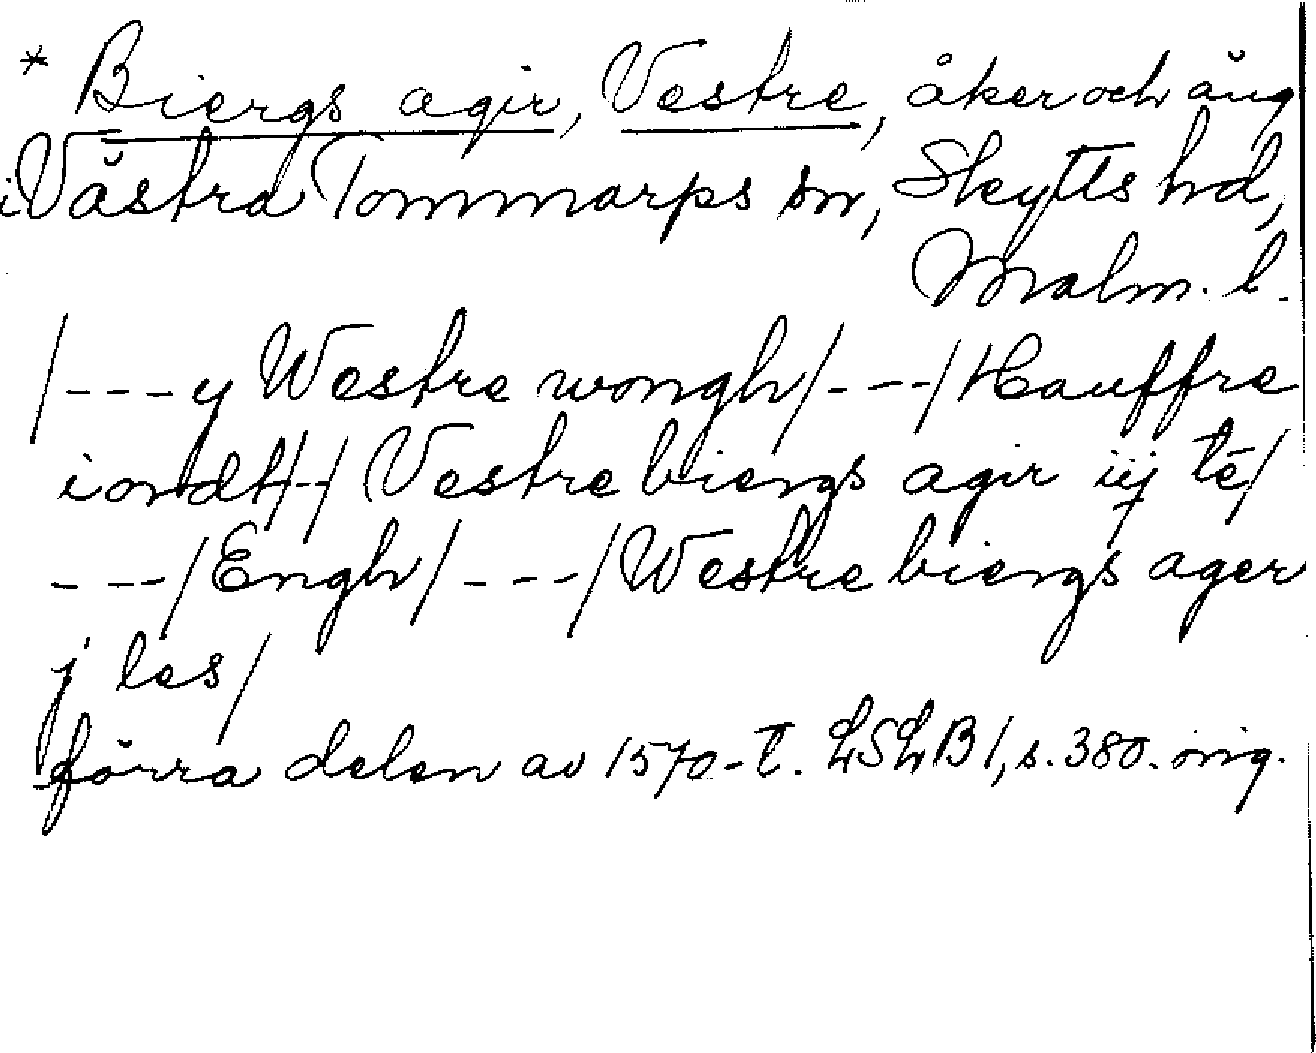 * Biergs agir, Vestre, åker och äng
i Västra Tommarps sn, Skytts hd,
Malm. l.
/---y Westre wongh/---/Hauffre
iordt/--/Vestre biergs agir iij té/
---/Engh/---/Westre biergs ager
j les/
förra delen av 1570-t. LSLB1, s. 380. orig.